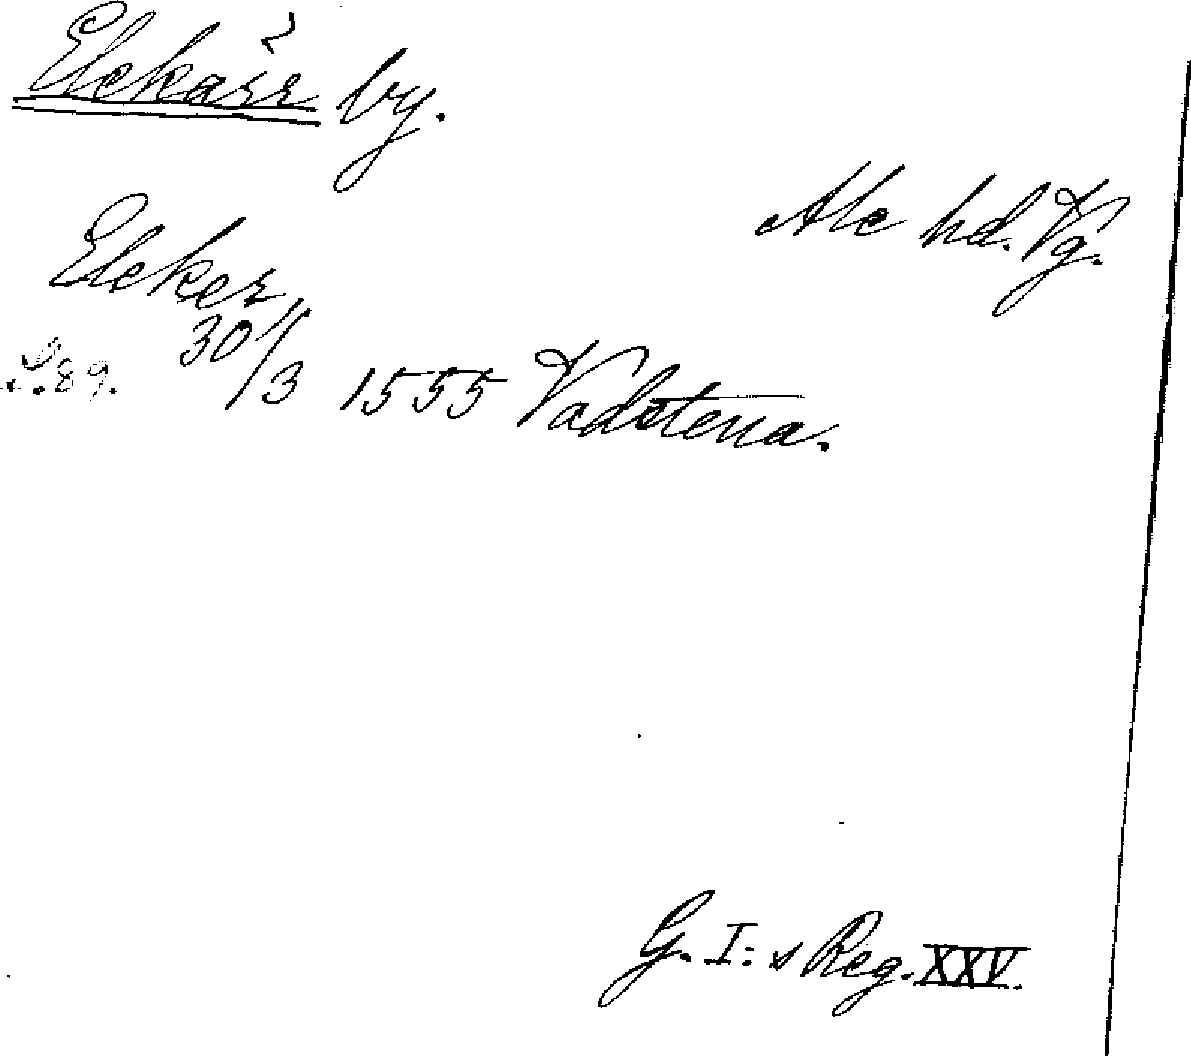 Elekärr by.
Ale hd. Vg.
Eleker
S. 89. 30/3 1555 Vadstena.
G. I:s Reg. XXV.